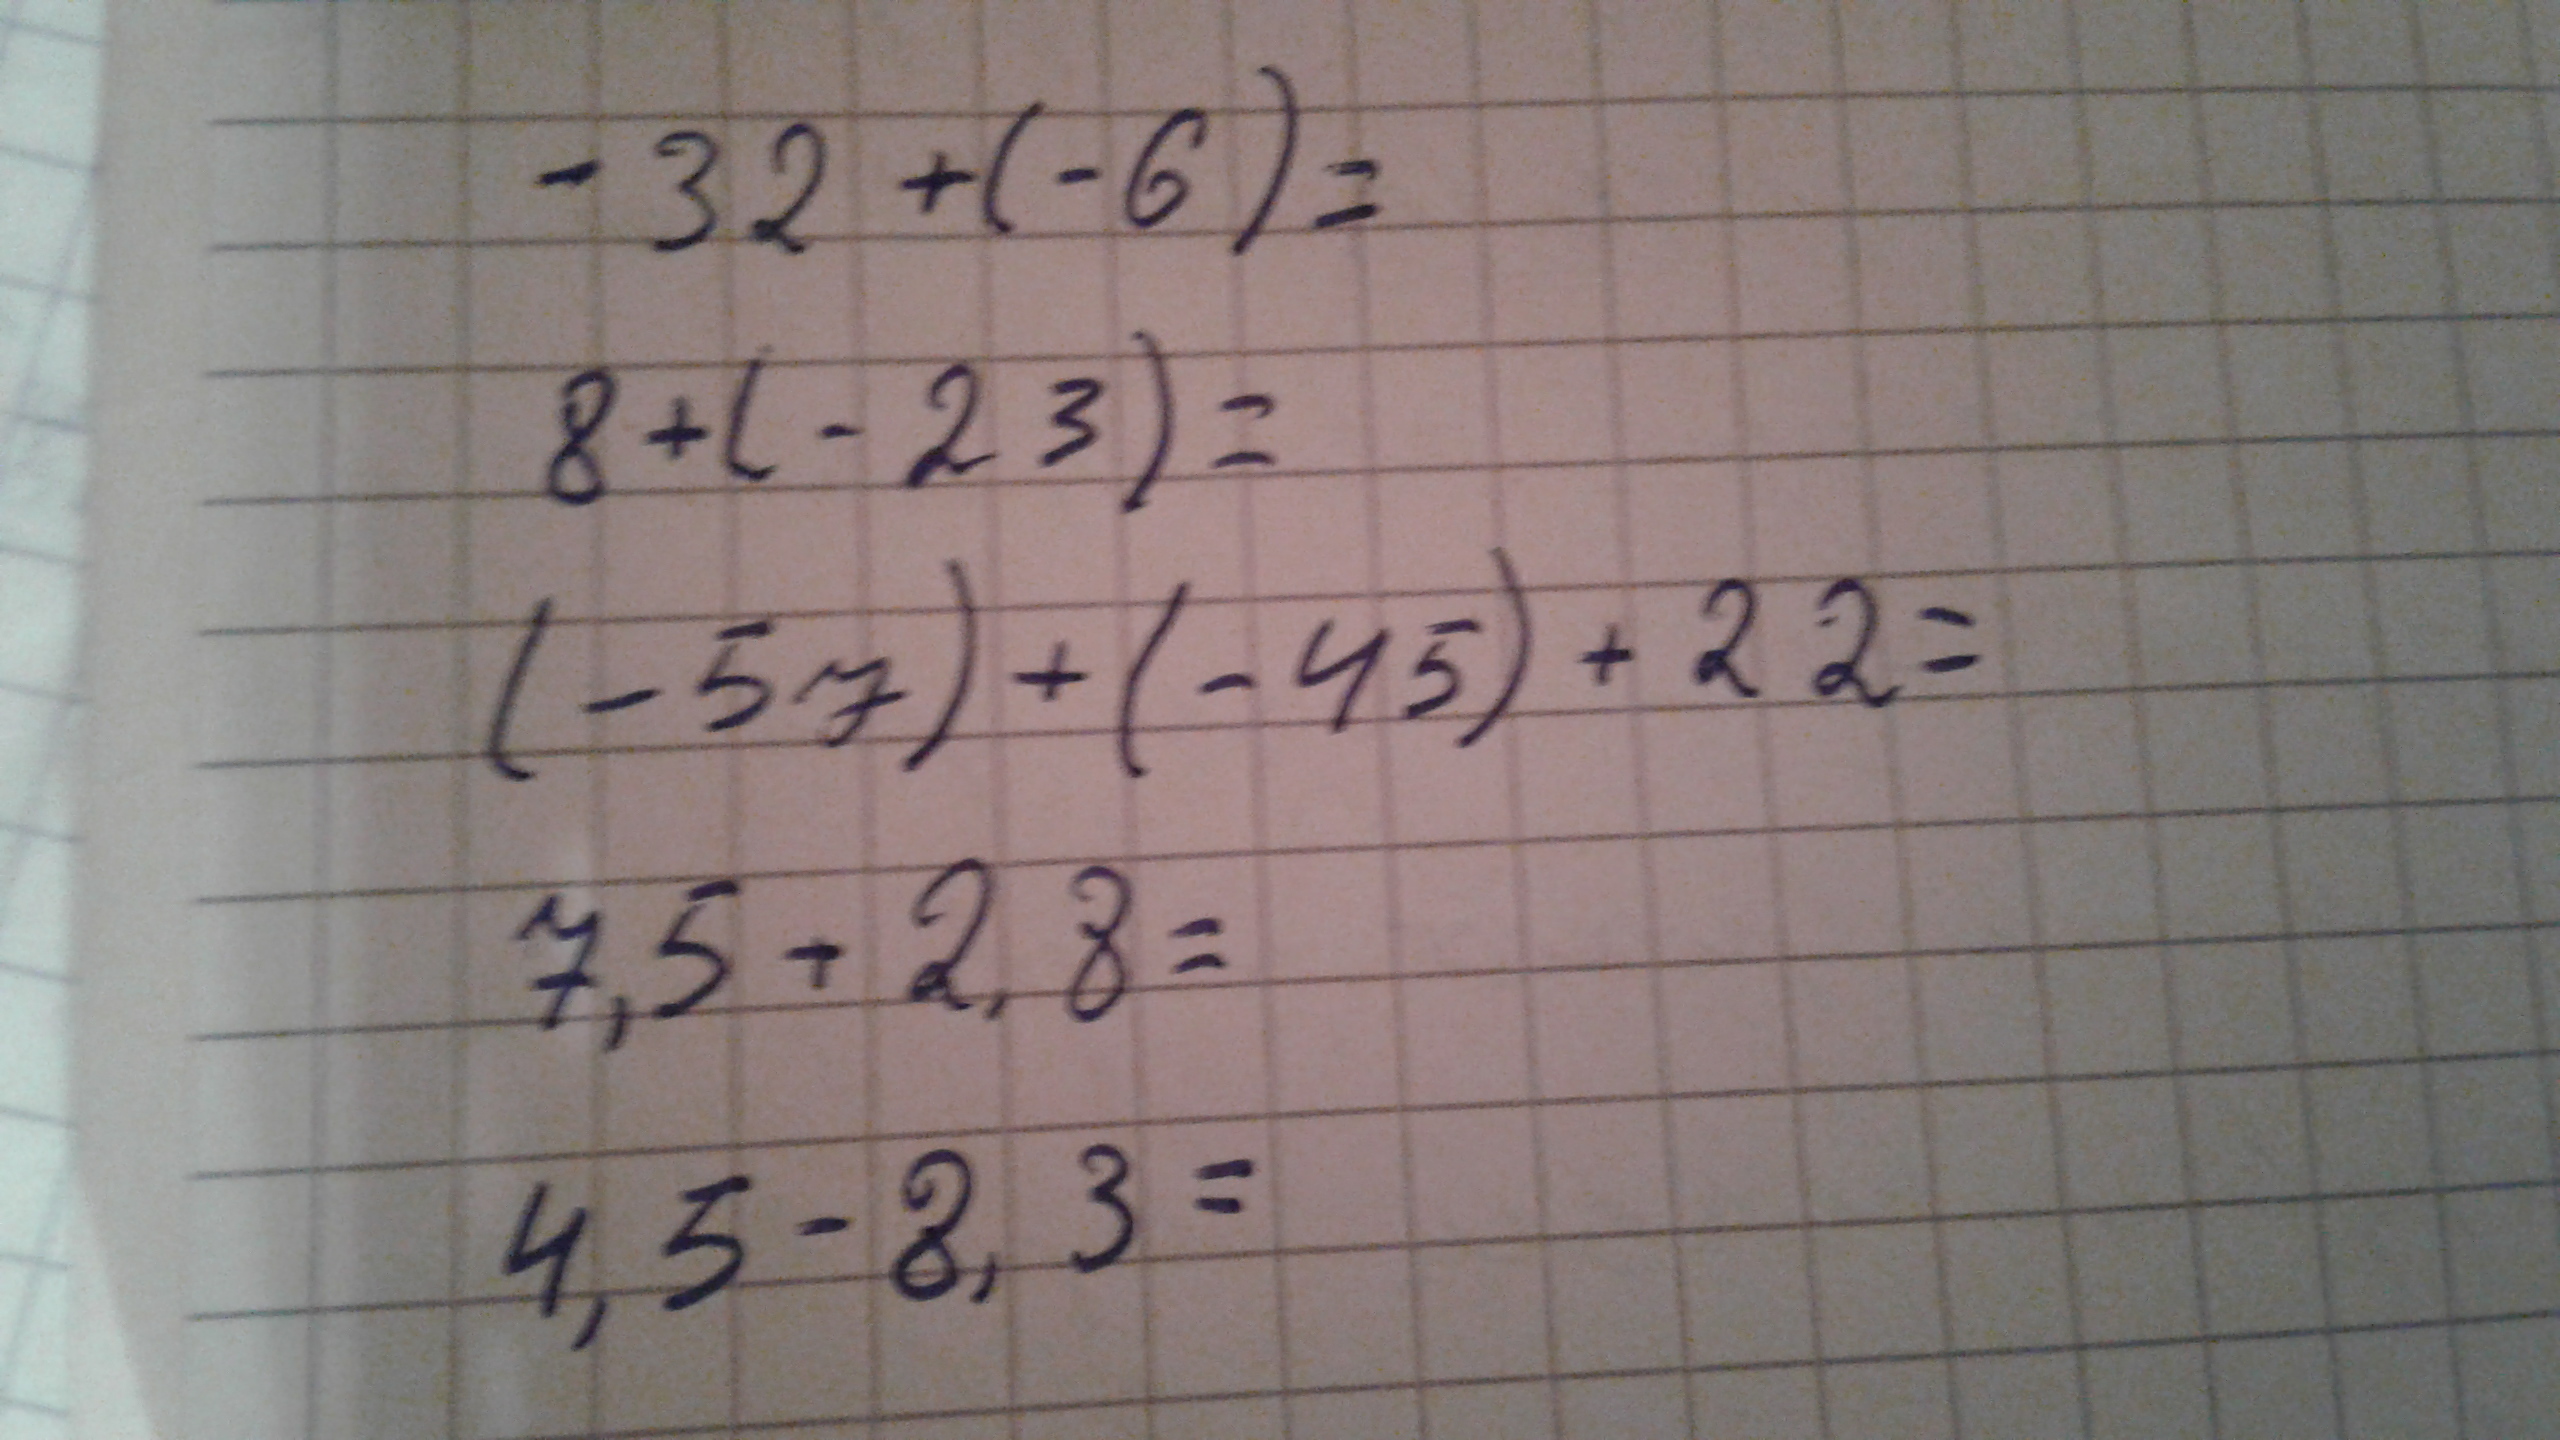 -32 +(-6)=
8+(-23)=
(-57)+(-45)+22=
7,5+2,8=
4,5-8,3=